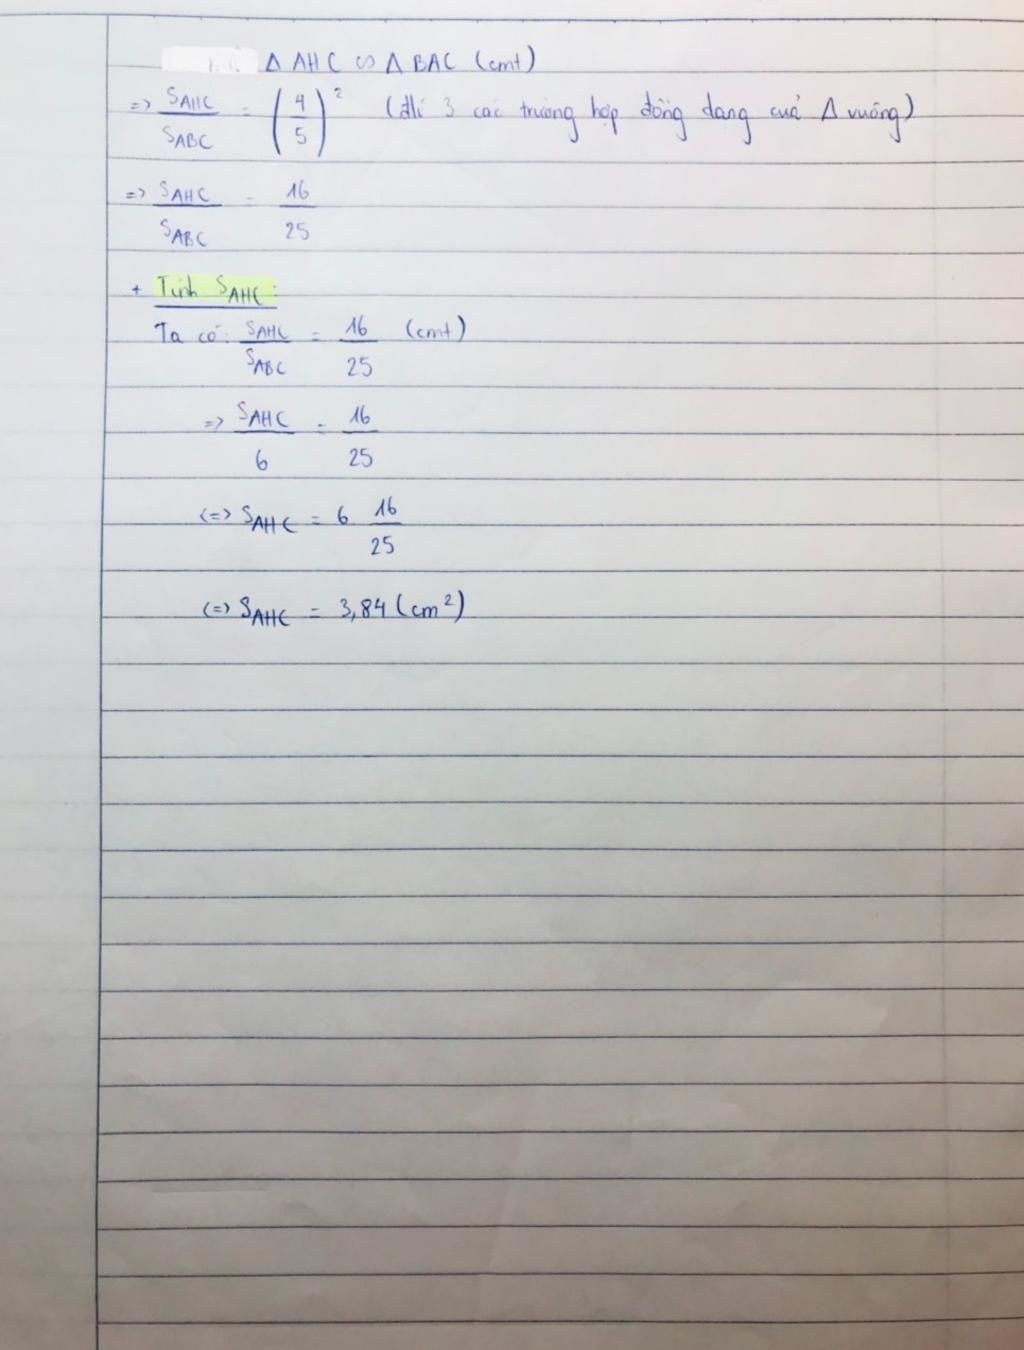 Δ AHC ∽ Δ BAC (cmt)
=> S_AHC / S_ABC = (4/5)² (đlí 3 các trường hợp đồng dạng cuả Δ vuông)
=> S_AHC / S_ABC = 16/25
+ Tính S_AHC:
Ta có: S_AHC / S_ABC = 16/25 (cmt)
=> S_AHC / 6 = 16/25
<=> S_AHC = 6. 16/25
<=> S_AHC = 3,84 (cm²)